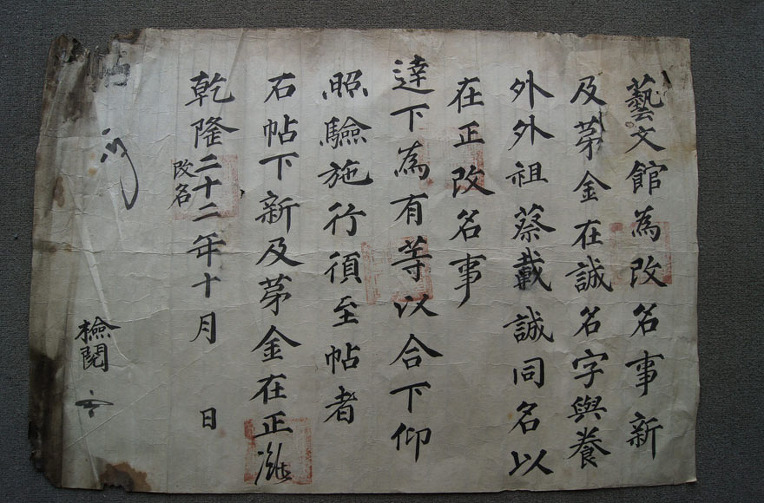 藝文館為改名事新
及茅金在誠名字與養
外外祖蔡載誠同名以
在正改名事
達下為有等以合下仰
照驗施行須至帖者
石帖下新及茅金在正
乾隆二十二年十月 日
改名
檢閱